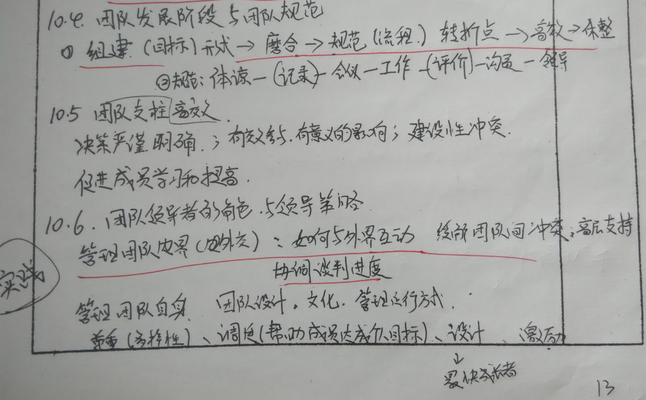 10.4. 团队发展阶段与团队规范
① 组建(目标)形式→磨合→规范(流程)转折点→高效→休整
②规范:体谅—(记录)—会议—工作—(评价)—沟通—领导
10.5 团队支柱 高效
决策严谨明确;有效结,有意义的影响;建设性冲突.
促进成员学习和提高.
10.6. 团队领导者的角色与领导策略
实践
管理团队边界(外交):如何与外界互动 缓解团队间冲突,高层支持
协调谈判进度
管理团队自身 团队设计,文化,管理运行方式.
尊重(选择性)、调适(帮助成员达成个目标)、设计、激励
↓
13